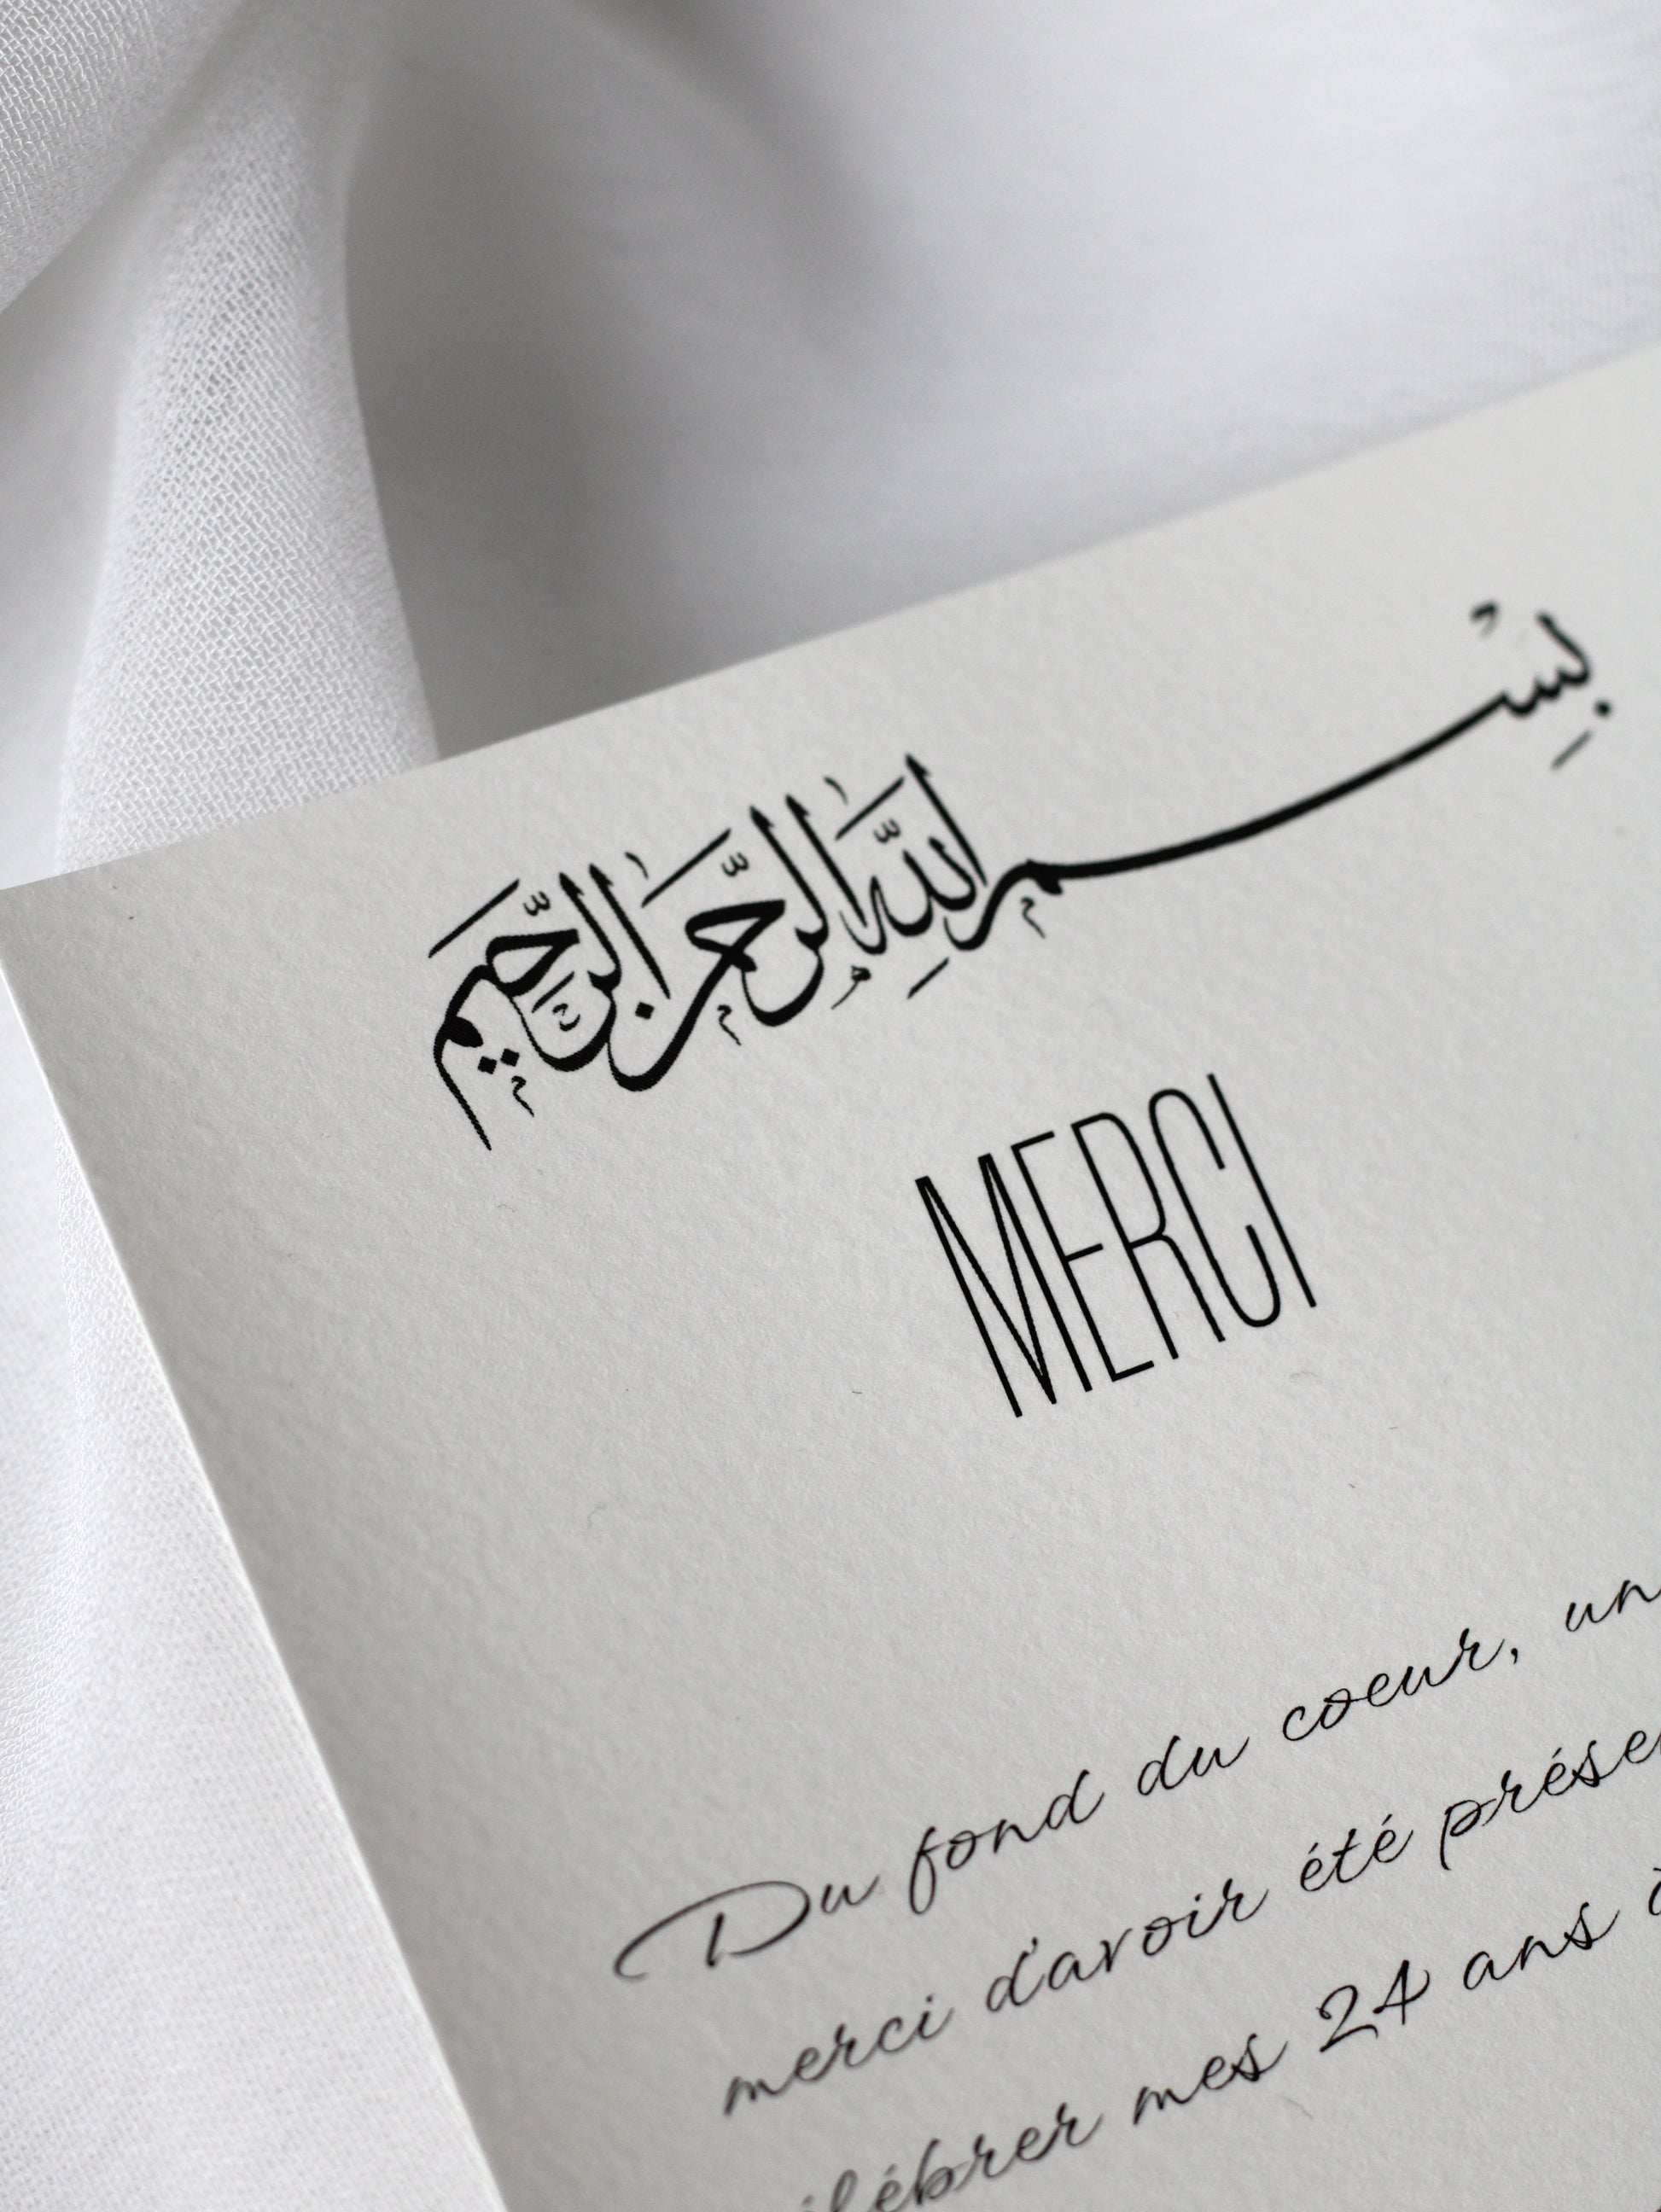 بِسْمِ اللَّهِ الرَّحْمَٰنِ الرَّحِيمِ
MERCI
Du fond du coeur, un
merci d'avoir été prése
célébrer mes 24 ans